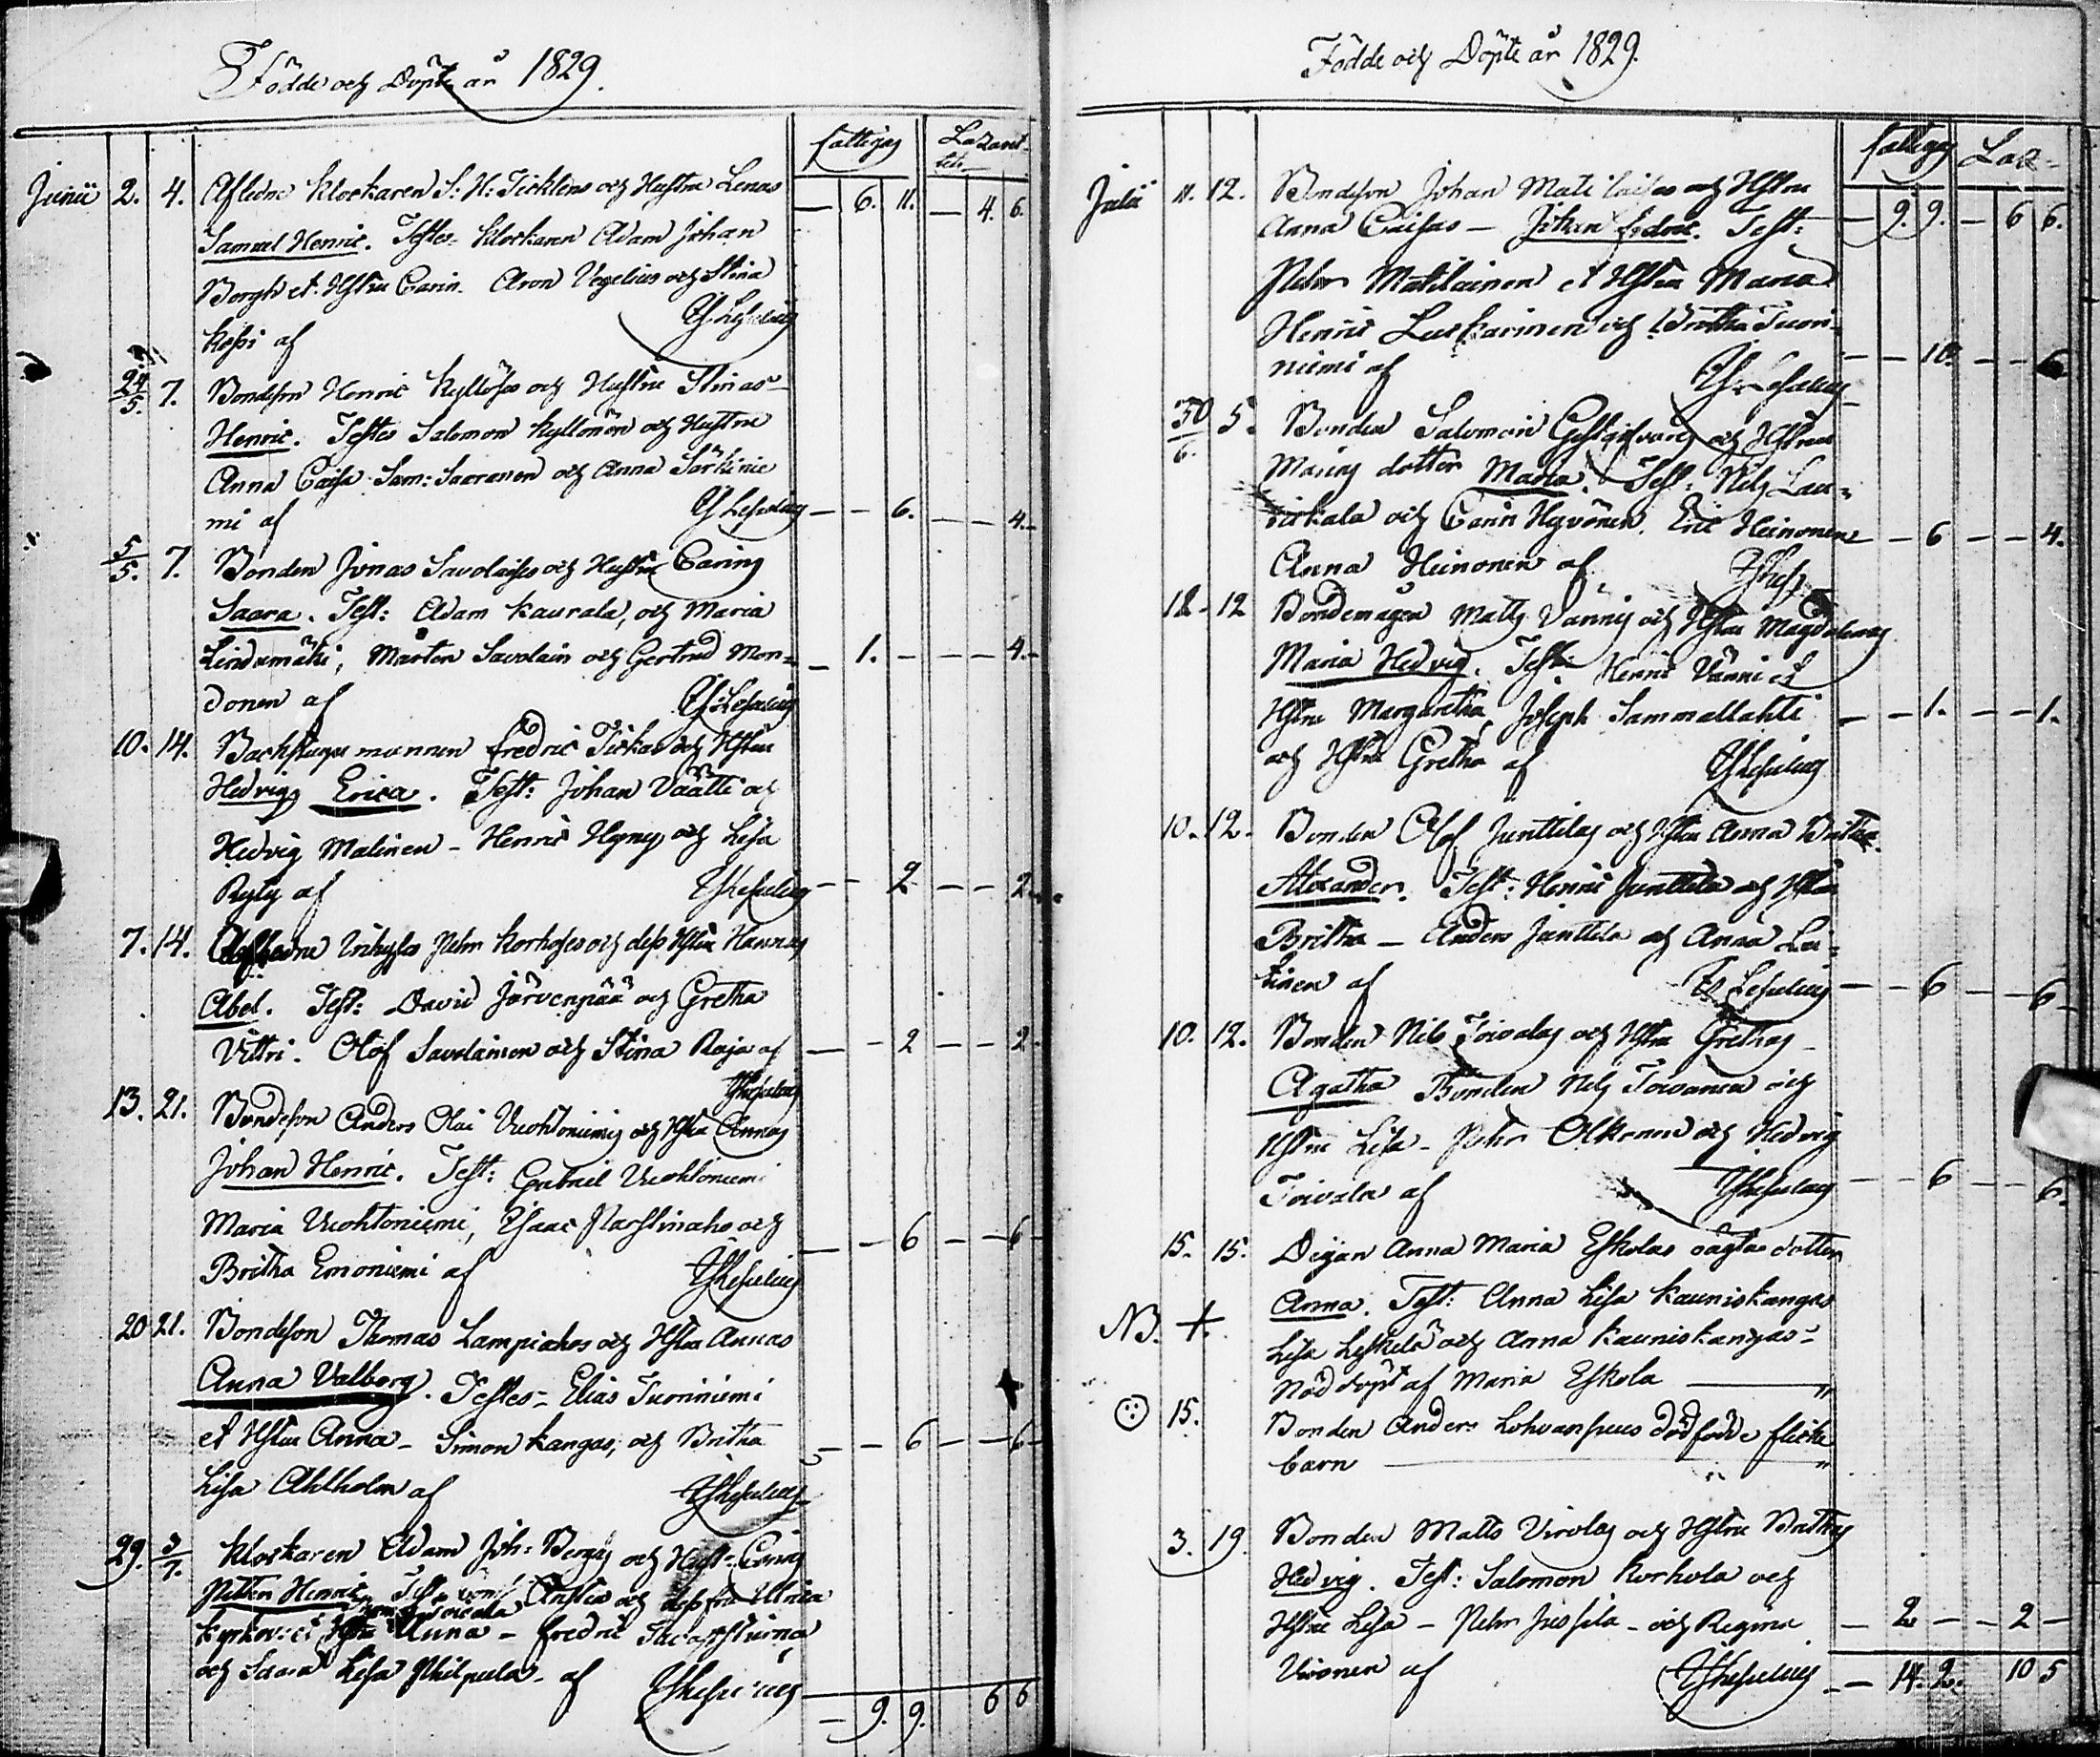 Födde och Döpte år 1829.
fattigas Lazaret-
tets
Junii 2. 4. Afledne Klockaren S: H: Ticklens och Hustru Lenas — 6. 11. — 4. 6.
Samuel Henric. Testes. Klockaren Adam Johan
Bergh et Hstru Carin. Aron Vegelius och Stina
Kossi af
24/5. 7. Bondeson Henric Kyllöses och Hustru Stinas
Henric. Testes Salomon Kyllönen och Hustru
Anna Caisa Sam: Saaranen och Anna Särkinie
mi af — — 6. — — 4.
5/5. 7. Bonden Jonas Savolaises och Hustru Carins
Saara. Test: Adam Kaurala, och Maria
Lindumäki, Mårten Savolain och Gertrud Mon- — 1. — — 4.
donen af
10. 14. Backstugumannen Fredric Tickas och Hstru
Hedvigs Erica. Test: Johan Väätti och
Hedvig Malinen - Henric Hyyny och Lisa
Ryty af — — 2 — — 2.
7. 14. Pehr Korhoses och dess Hstru Hannas
Abel. Test: David Järvenpää och Gretha
Vittri. Olof Savolainen och Stina Raja af — — 2 — — 2
13. 21. Bondeson Anders Olai Vuohtoniemis och Hstru Annas
Johan Henric. Test: Gabriel Vuohtoniemi
Maria Vuohtoniemi, Isaac Parstinaho och — — 6 — — 6
Britha Emoniemi af
20 21. Bondeson Thomas Lampiahos och Hstru Annas
Anna Valborg. Testes - Elias Tuoriniemi
et Hstru Anna - Simon Kangas, och Britha — — 6 — — 6
Lisa Ahlholm af
29. 3/7. Klockaren Adam Joh: Berghs och Hust: Carins
Petter Henric. Test: och dess fru Ulrica
Kyrkov: et Hstru Anna - Fredric
och Saara Lisa Philpula - af
— 9. 9. 6 6
Födde och Döpte år 1829.
fattigas Laz-
Julii 11. 12. Bondeson Johan Matilaises och Hstru
Anna Caisas - Johan Fredric. Test: — 9. 9. — 6 6.
Pehr Matilainen et Hstru Maria
Henric Luskarinen och Britha Tuori-
niemi af — — 10. — — 6
30/6. 5. Bonden Salomon Gestgifvares och Hstru
Marias dotter Maria. Test: Nils Lau-
rikala och Carin Hyvönen. Eric Heinonen — — 6 — — 4.
Anna Heinonen af
12 - 12 Bondemågen Matts Vännis och Hstru Magdalenas
Maria Hedvig. Test: Henric Vänni et
Hstru Margaretha, Joseph Sammallahti — — 1. — — 1.
och Hstru Gretha af
10. 12. Bonden Olof Junttilas och Hstru Anna Brithas
Alexander. Test: Henric Junttila och Hstru
Britha - Anders Junttila och Anna Lei-
tinen af — — 6 — — 6
10. 12. Bonden Nils Toivolas och Hstru Grethas
Agatha Bonden Nils Toivanen och
Hstru Lisa - Petter Olkonen och Hedvig
Toivola af — — 6 — — 6.
15. 15. Pigan Anna Maria Eskolas oägta dotter
NB. +. Anna. Test: Anna Lisa Kauniskangas
Lisa Leskelä och Anna Kauniskangas -
Nöddöpt af Maria Eskola — "
15. Bonden Anders Lohvansuus dödfödde flicke
barn — "
3. 19. Bonden Matts Virolas och Hstru Brithas
Hedvig. Test: Salomon Korhola och
Hstru Lisa - Pehr Jussila - och Regina — 2 — — 2 —
Vironen af
— 14. 2. 10 5